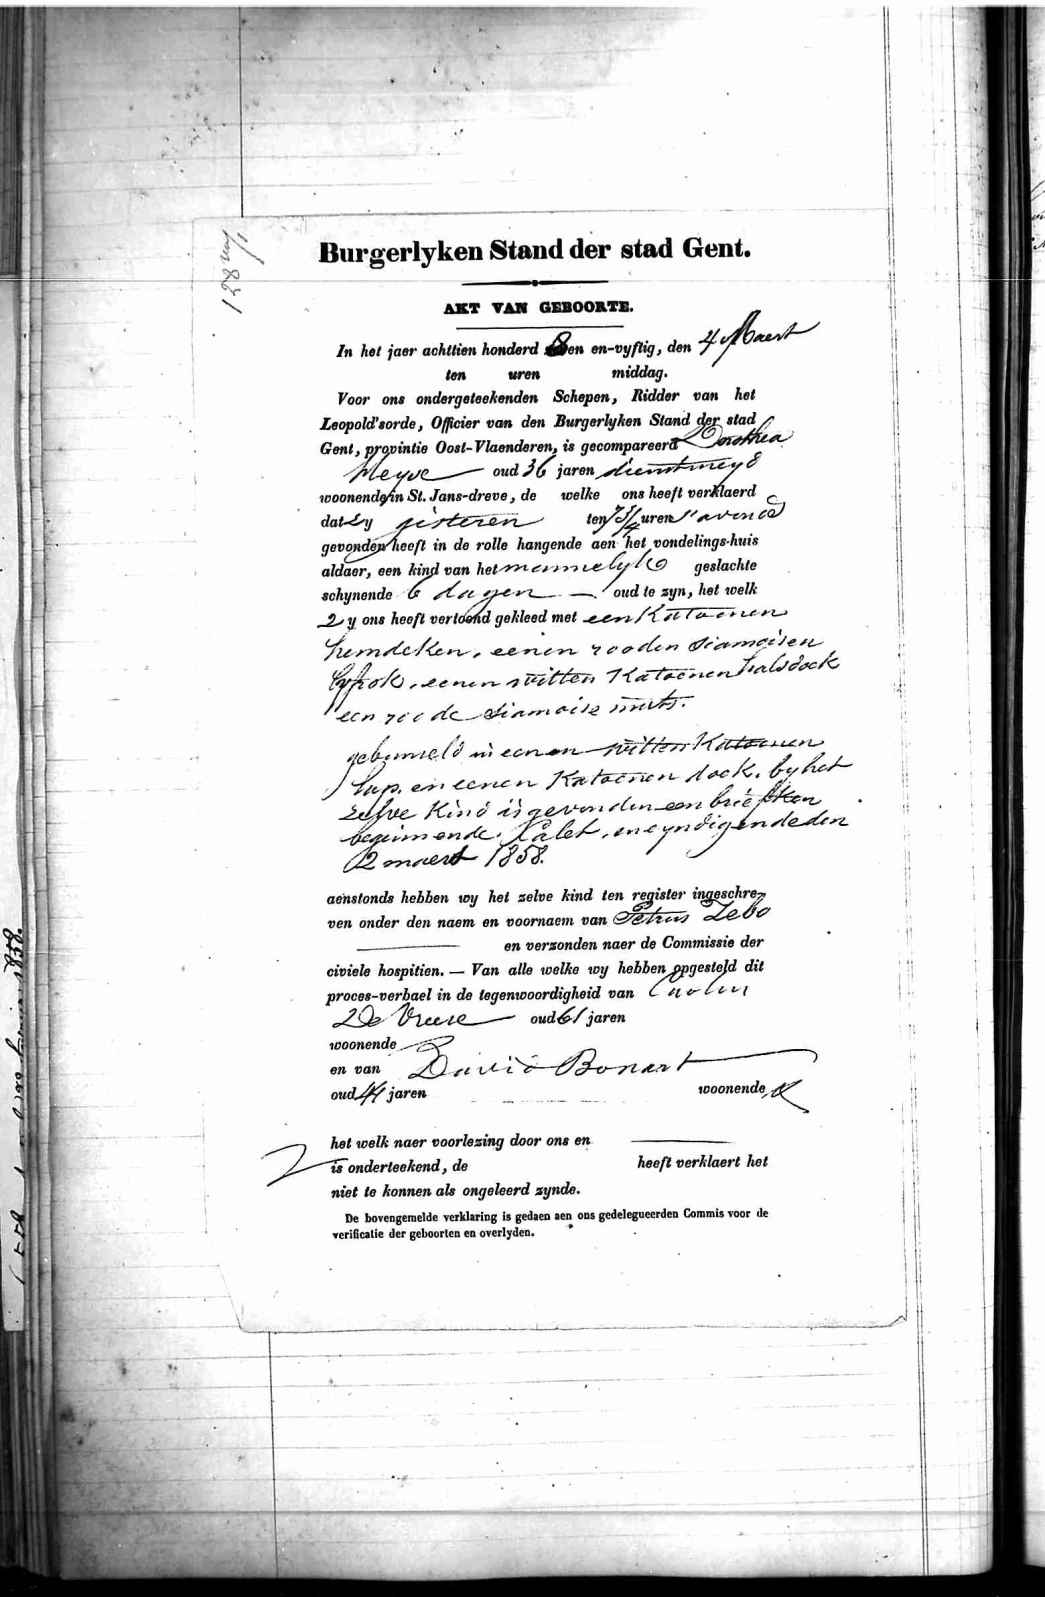 128
Burgerlyken Stand der stad Gent.
AKT VAN GEBOORTE.
In het jaer achttien honderd 8 en en-vyftig, den 4 Maert
ten uren middag.
Voor ons ondergeteekenden Schepen, Ridder van het
Leopold'sorde, Officier van den Burgerlyken Stand der stad
Gent, provintie Oost-Vlaenderen, is gecompareerd Dorothea
oud 36 jaren dienstmeyd
woonende in St. Jans-dreve, de welke ons heeft verklaerd
dat Zy gisteren ten 7 3/4 uren s'avonds
gevonden heeft in de rolle hangende aen het vondelings-huis
aldaer, een kind van het mannelyk geslachte
schynende 6 dagen oud te zyn, het welk
Zy ons heeft vertoond gekleed met een Katoenen
hemdeken, eenen rooden siamoisen
lyfrok, eenen witten Katoenen halsdoek
een roode siamoise muts.
gebunseld in eenen witten Katoenen
lap, en eenen Katoenen doek, by het
zelve Kind is gevonden een briefken
beginnende: Calet, en eyndigende den
2 maert 1858.
aenstonds hebben wy het zelve kind ten register ingeschre-
ven onder den naem en voornaem van Petrus Zebo
en verzonden naer de Commissie der
civiele hospitien. — Van alle welke wy hebben opgesteld dit
proces-verbael in de tegenwoordigheid van
De Vreese oud 61 jaren
woonende
en van David Bonart
oud 44 jaren woonende
het welk naer voorlezing door ons en
is onderteekend, de heeft verklaert het
niet te konnen als ongeleerd zynde.
De bovengemelde verklaring is gedaen aen ons gedelegueerden Commis voor de
verificatie der geboorten en overlyden.